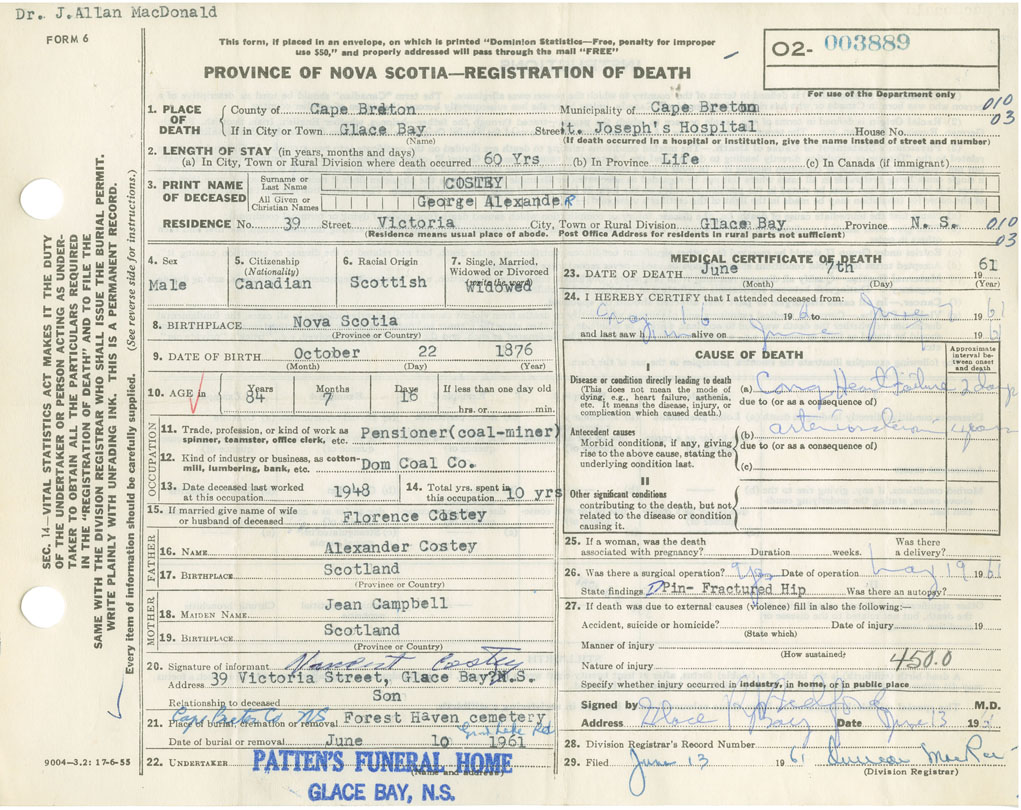 Dr. J.Allan MacDonald
FORM 6
This form, if placed in an envelope, on which is printed "Dominion Statistics—Free, penalty for improper
use $50," and properly addressed will pass through the mail "FREE"
PROVINCE OF NOVA SCOTIA—REGISTRATION OF DEATH
02- 003889
For use of the Department only
010
03
1. PLACE OF DEATH
County of Cape Breton Municipality of Cape Breton
If in City or Town Glace Bay Street St. Joseph's Hospital House No.
(Name) (If death occurred in a hospital or institution, give the name instead of street and number)
2. LENGTH OF STAY (in years, months and days)
(a) In City, Town or Rural Division where death occurred 60 Yrs (b) In Province Life (c) In Canada (if immigrant)
3. PRINT NAME OF DECEASED
Surname or Last Name COSTEY
All Given or Christian Names George Alexander
RESIDENCE No. 39 Street Victoria City, Town or Rural Division Glace Bay Province N. S. 010
(Residence means usual place of abode. Post Office Address for residents in rural parts not sufficient) 03
4. Sex
Male
5. Citizenship
(Nationality)
Canadian
6. Racial Origin
Scottish
7. Single, Married,
Widowed or Divorced
(write the word)
Widowed
8. BIRTHPLACE Nova Scotia
(Province or Country)
9. DATE OF BIRTH October 22 1876
(Month) (Day) (Year)
10. AGE in
Years Months Days If less than one day old
84 7 16
hrs. or min.
OCCUPATION
11. Trade, profession, or kind of work as
spinner, teamster, office clerk, etc. Pensioner(coal-miner)
12. Kind of industry or business, as cotton-
mill, lumbering, bank, etc. Dom Coal Co.
13. Date deceased last worked
at this occupation 1948
14. Total yrs. spent in
this occupation 10 yrs
15. If married give name of wife
or husband of deceased Florence Costey
FATHER
16. NAME Alexander Costey
17. BIRTHPLACE Scotland
(Province or Country)
MOTHER
18. MAIDEN NAME Jean Campbell
19. BIRTHPLACE Scotland
(Province or Country)
20. Signature of informant Costey
Address 39 Victoria Street, Glace Bay, N.S.
Relationship to deceased Son
Cape Breton Co N.S.
21. Place of burial, cremation or removal Forest Haven cemetery
Date of burial or removal June 10 1961
22. UNDERTAKER PATTEN'S FUNERAL HOME
(Name and address)
GLACE BAY, N.S.
MEDICAL CERTIFICATE OF DEATH
23. DATE OF DEATH June 7th 1961
(Month) (Day) (Year)
24. I HEREBY CERTIFY that I attended deceased from:
May 16 1961 to June 7 1961
and last saw him alive on June 7 196
CAUSE OF DEATH
Approximate
interval be-
tween onset
and death
I
Disease or condition directly leading to death
(This does not mean the mode of
dying, e.g., heart failure, asthenia,
etc. It means the disease, injury, or
complication which caused death.)
(a) Cong Heart Failure 2 days
due to (or as a consequence of)
Antecedent causes
Morbid conditions, if any, giving
rise to the above cause, stating the
underlying condition last.
(b) years
due to (or as a consequence of)
(c)
II
Other significant conditions
contributing to the death, but not
related to the disease or condition
causing it.
25. If a woman, was the death Was there
associated with pregnancy? Duration weeks. a delivery?
26. Was there a surgical operation? yes Date of operation May 19 1961
State findings Pin- Fractured Hip Was there an autopsy?
27. If death was due to external causes (violence) fill in also the following:—
Accident, suicide or homicide? Date of injury 19
(State which)
Manner of injury
(How sustained)
Nature of injury 450.0
Specify whether injury occurred in industry, in home, or in public place
Signed by M.D.
Address Glace Bay Date June 13 1961
28. Division Registrar's Record Number
29. Filed June 13 1961 Duncan MacRae
(Division Registrar)
SEC. 14—VITAL STATISTICS ACT MAKES IT THE DUTY
OF THE UNDERTAKER OR PERSON ACTING AS UNDER-
TAKER TO OBTAIN ALL THE PARTICULARS REQUIRED
IN THE "REGISTRATION OF DEATH" AND TO FILE THE
SAME WITH THE DIVISION REGISTRAR WHO SHALL ISSUE THE BURIAL PERMIT.
WRITE PLAINLY WITH UNFADING INK. THIS IS A PERMANENT RECORD.
Every item of information should be carefully supplied. (See reverse side for instructions.)
9004—3.2: 17-6-55